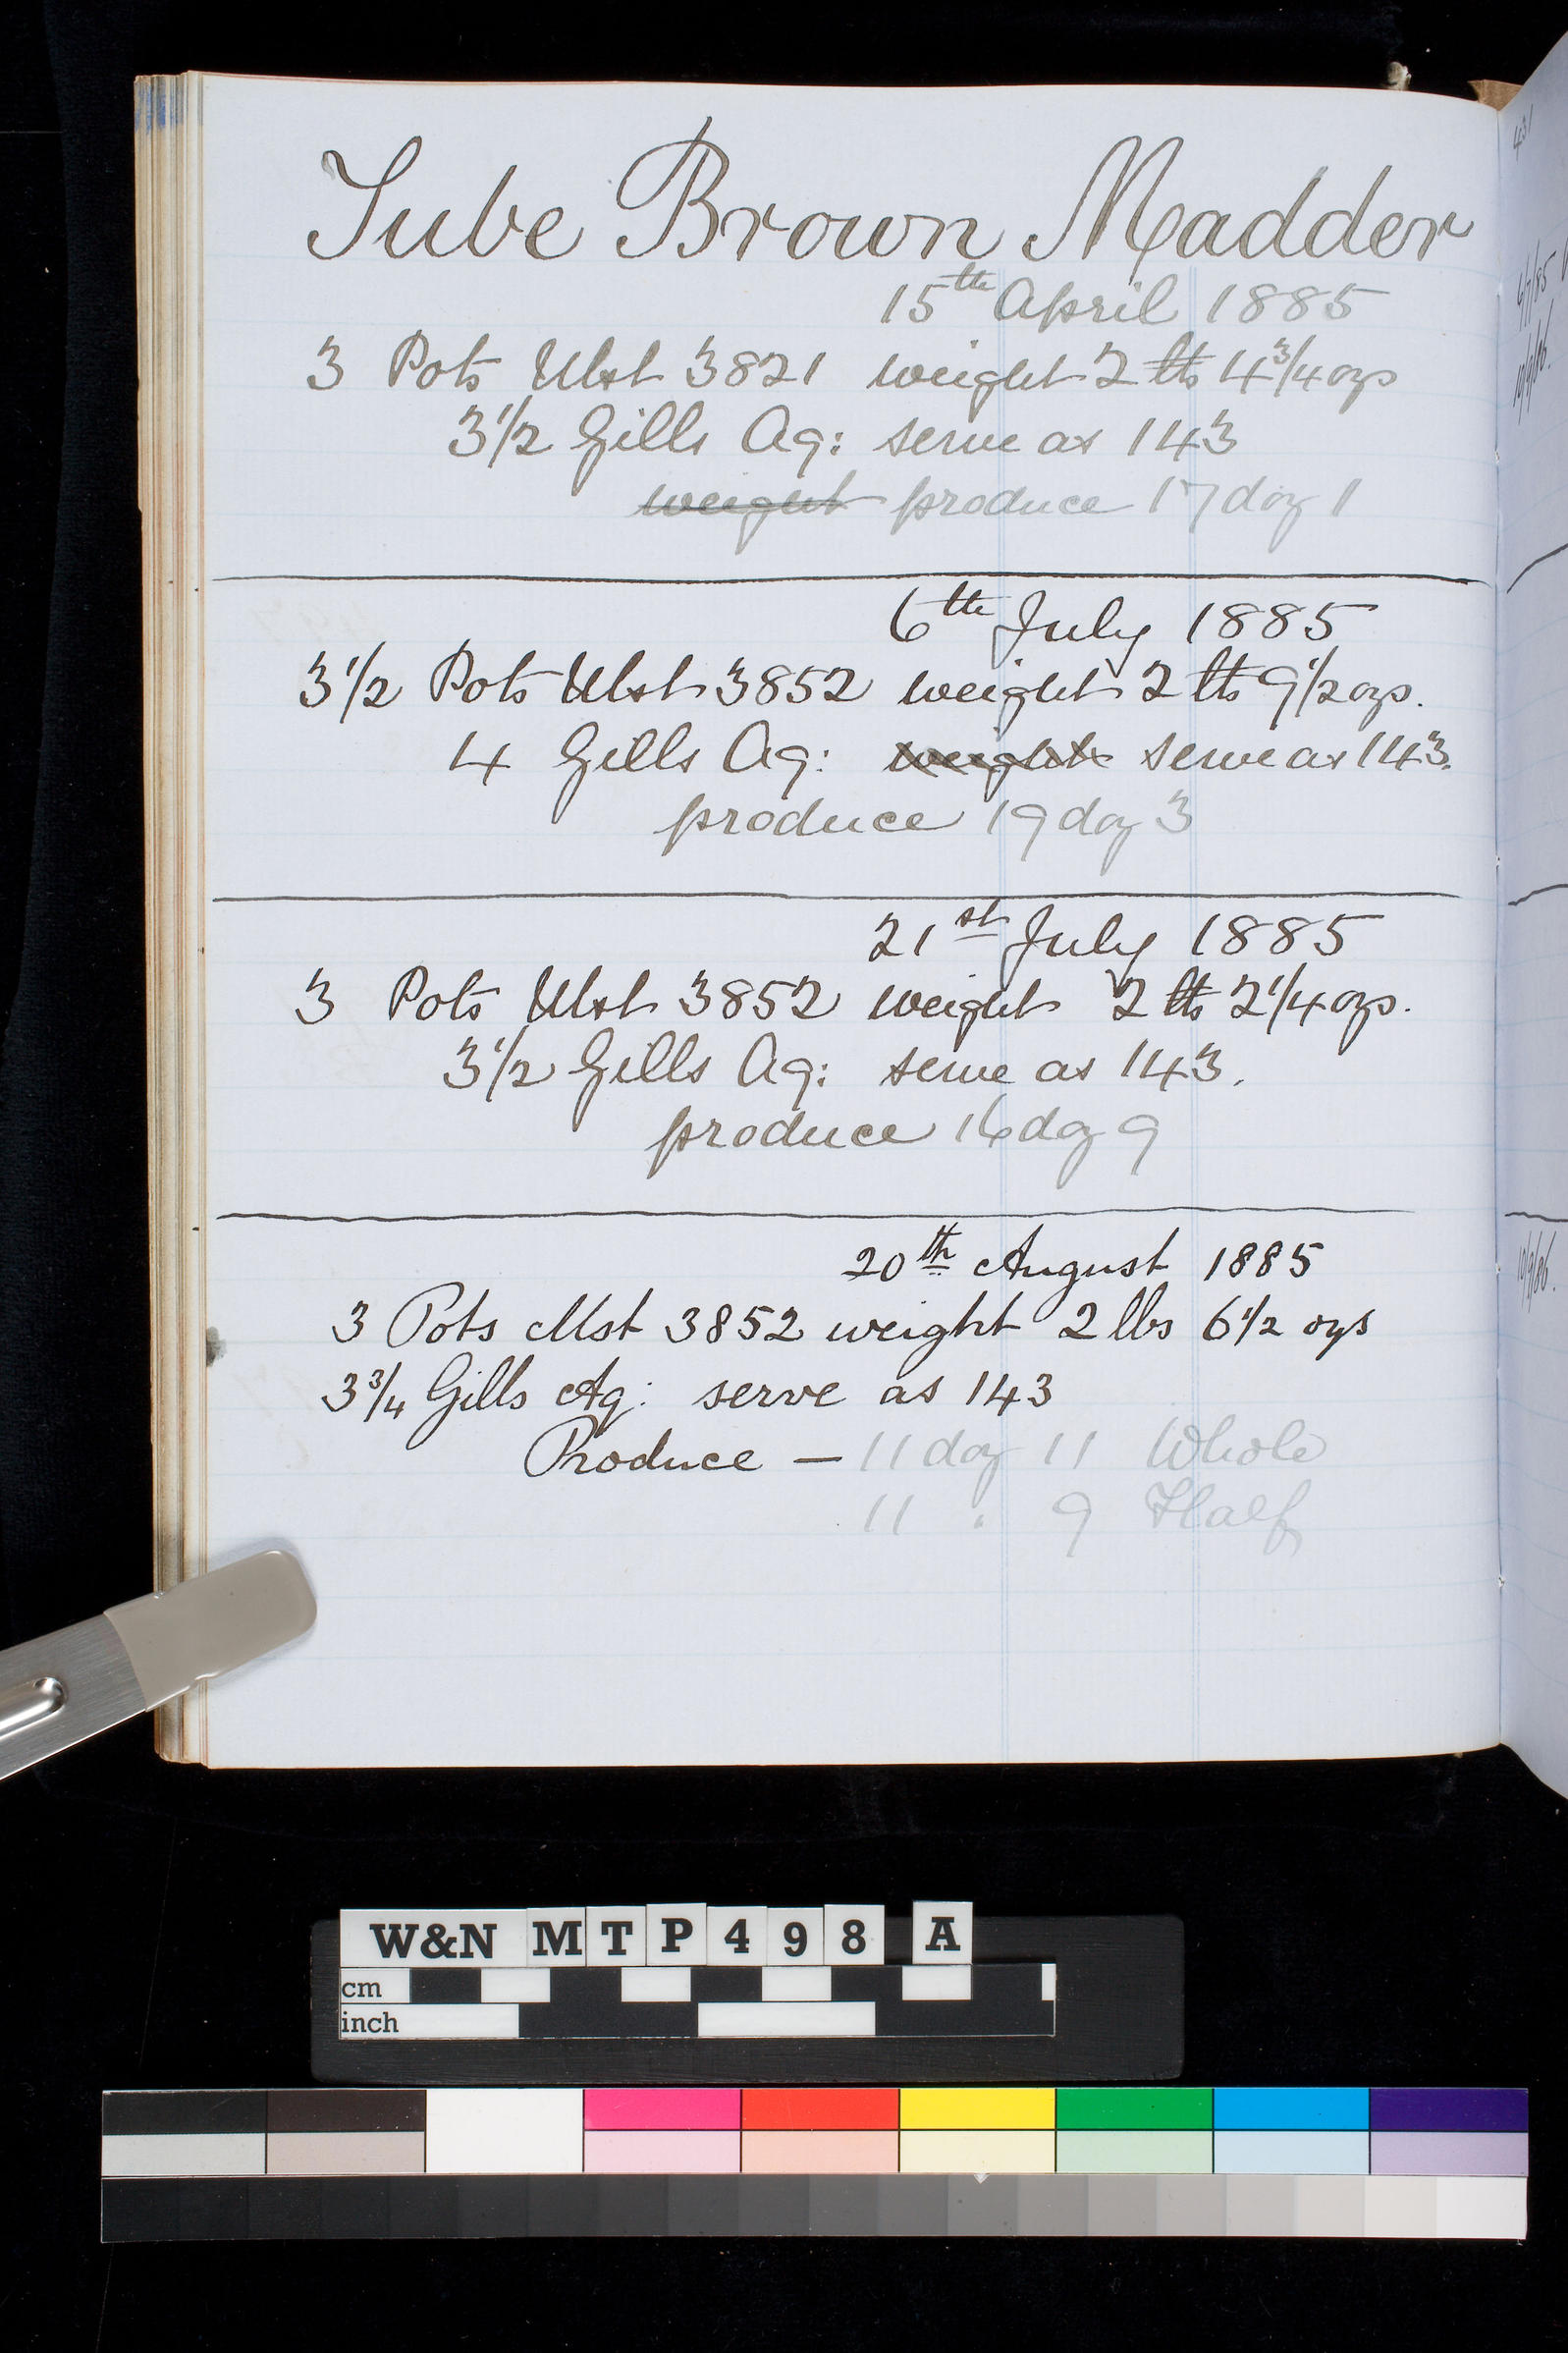 Tube Brown Madder
15th April 1885
3 Pots Ulst 3821 weight 2 lbs 4 3/4 ozs
3 1/2 Gills Aq: serve as 143
weight produce 17 doz 1
6th July 1885
3 1/2 Pots Ulst 3852 weight 2 lbs 9 1/2 ozs.
4 Gills Aq: weight serve as 143.
produce 19 doz 3
21st July 1885
3 Pots Ulst 3852 weight 2 lbs 2 1/4 ozs.
3 1/2 Gills Aq: serve as 143.
produce 16 doz 9
20th August 1885
3 Pots Ulst 3852 weight 2 lbs 6 1/2 ozs
3 3/4 Gills Aq: serve as 143
Produce — 11 doz 11 Whole
11 . 9 Half
W&N MTP498 A
cm
inch